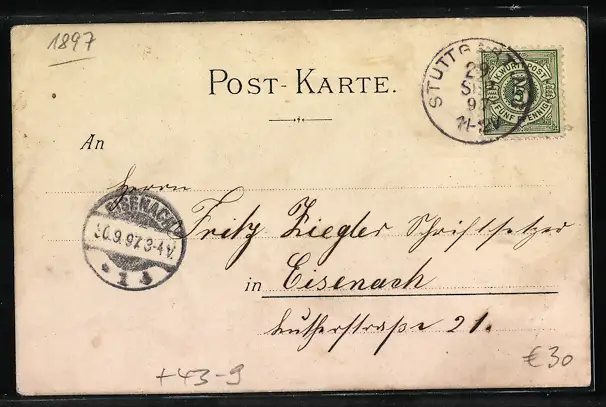 1897
POST-KARTE.
STUTTGART
29
SE
97
11-12V
K.WURTT.POST
5
FÜNF PFENNIG
An
Herrn
Fritz Ziegler Schriftsetzer
EISENACH
30.9.97.3-4V.
* 1 
in Eisenach
Lutherstraße 21.
+43-9
€30